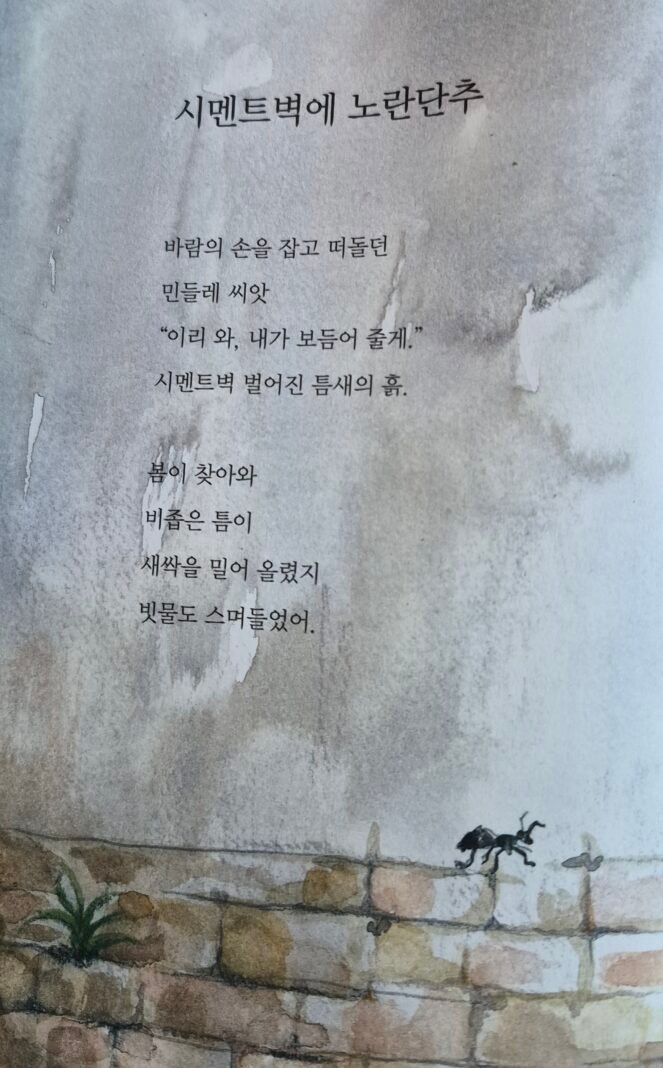 시멘트벽에 노란단추
바람의 손을 잡고 떠돌던
민들레 씨앗
“이리 와, 내가 보듬어 줄게.”
시멘트벽 벌어진 틈새의 흙.
봄이 찾아와
비좁은 틈이
새싹을 밀어 올렸지
빗물도 스며들었어.